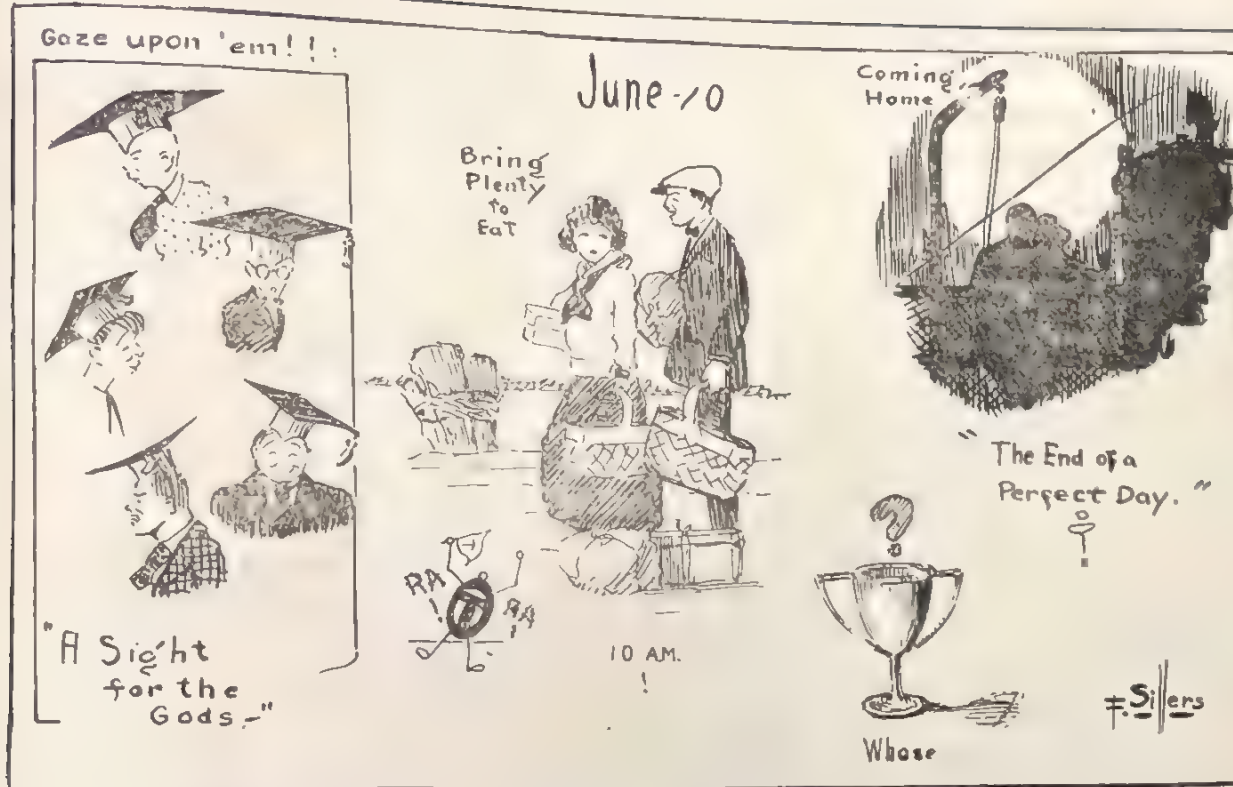 Gaze upon 'em!!!
"A Sight
for the
Gods.-"
June-10
Bring
Plenty
to
Eat
RA
!
RA
!
10 AM.
!
Coming
Home
"The End of a
Perfect Day."
?
Whose
F. Sillers